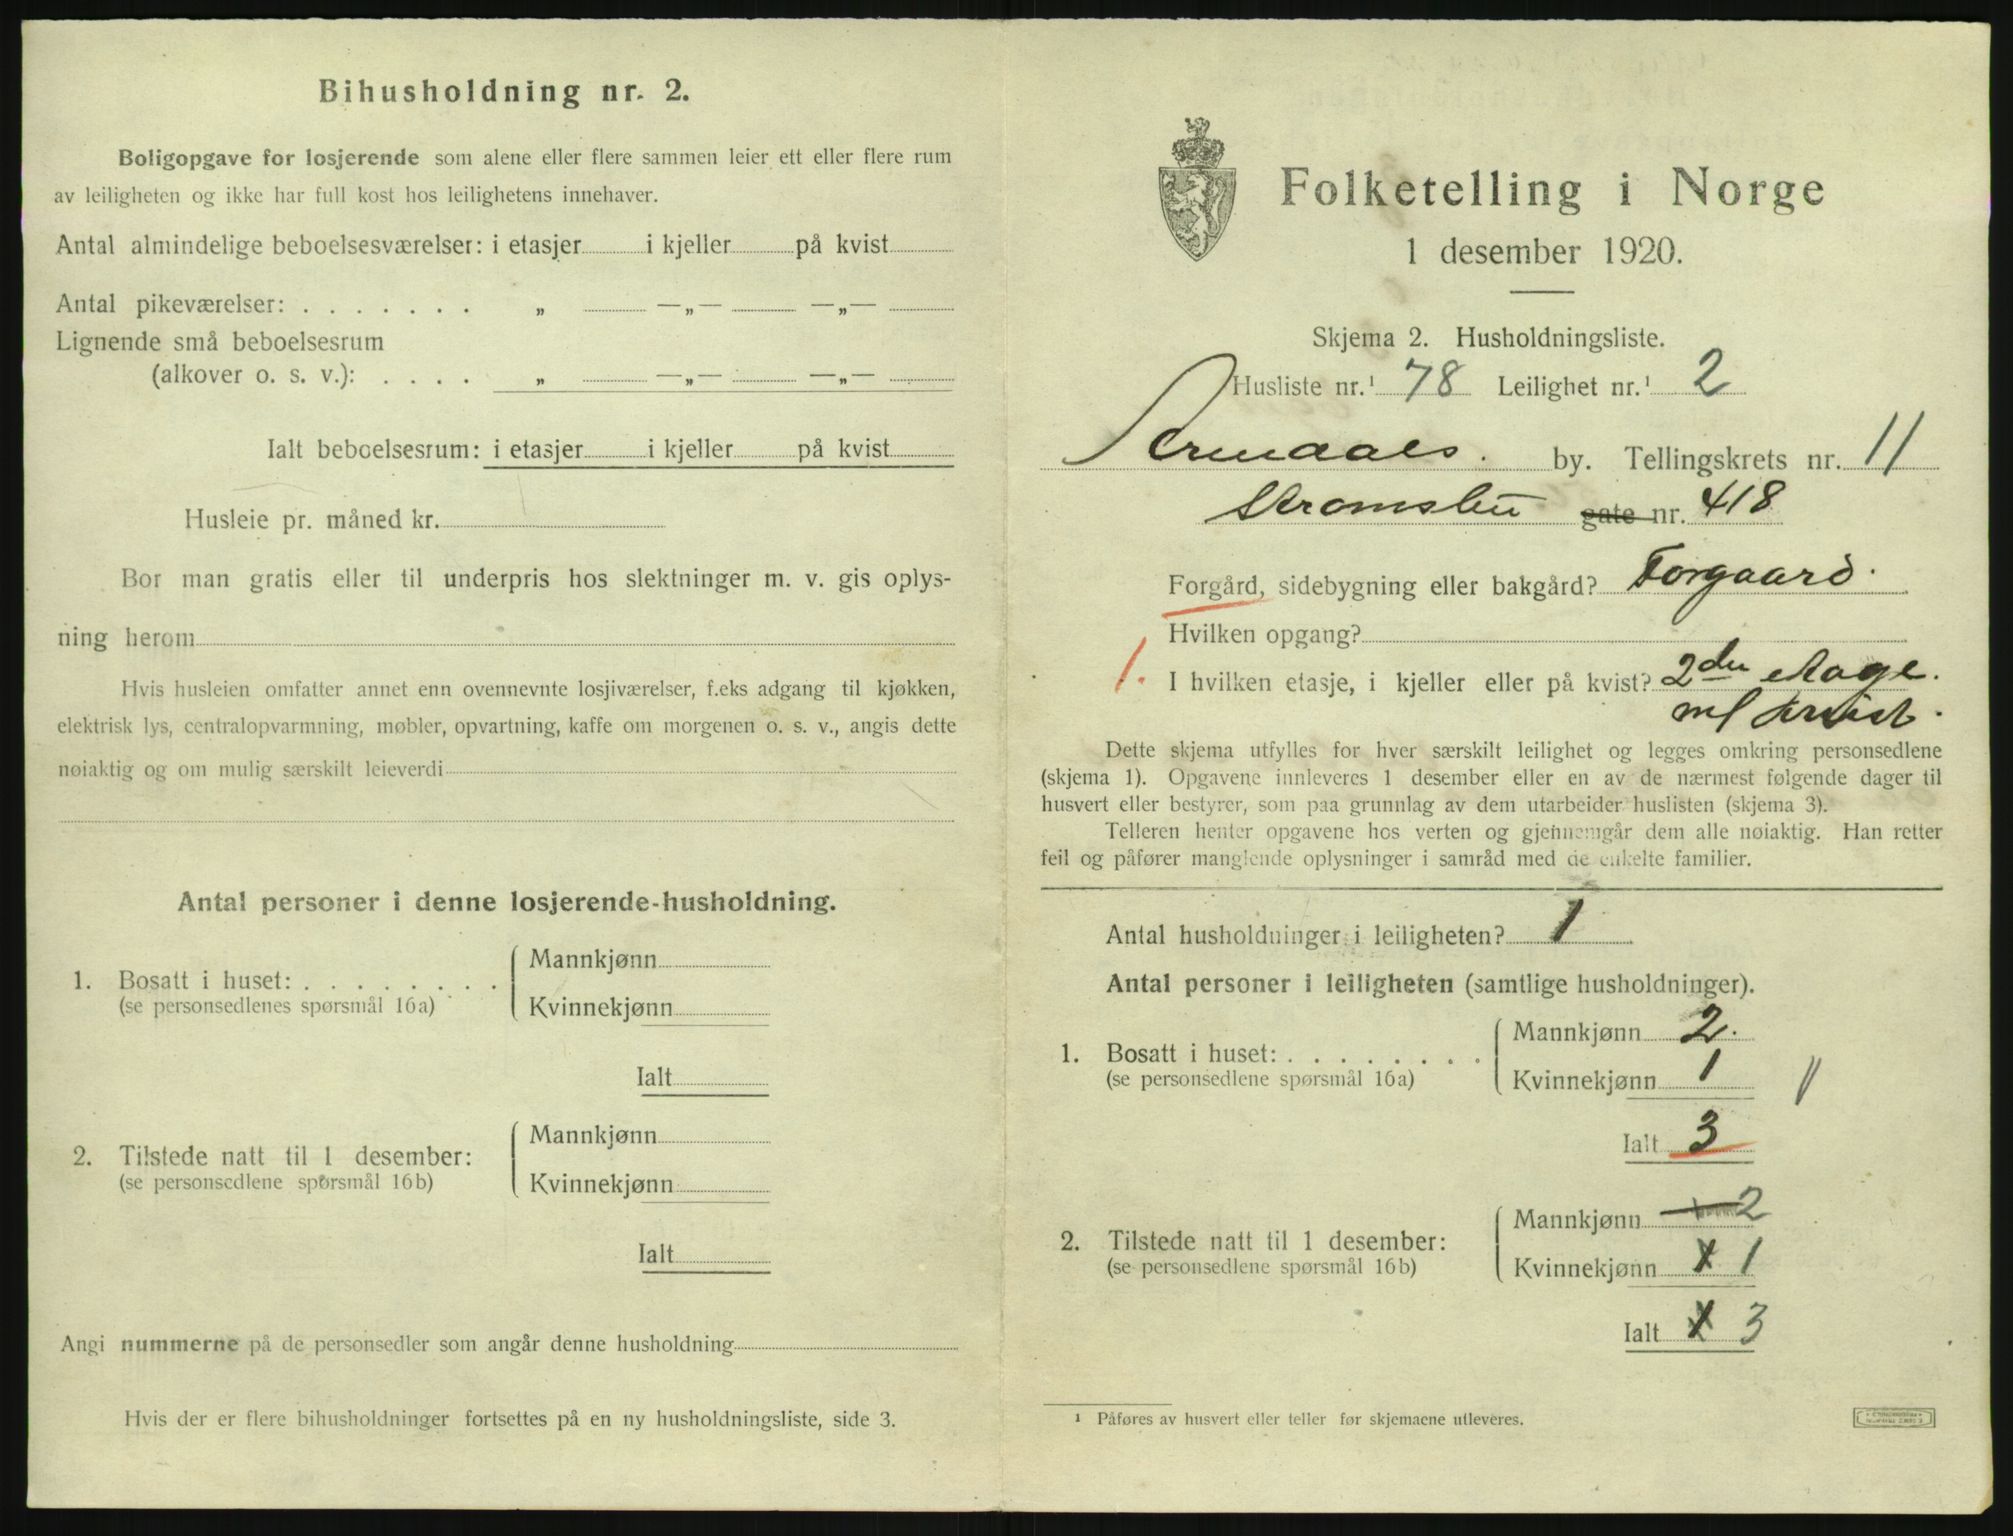 Bihusholdning nr. 2.
Boligopgave for losjerende som alene eller flere sammen leier ett eller flere rum
av leiligheten og ikke har full kost hos leilighetens innehaver.
Antal almindelige beboelsesværelser: i etasjer i kjeller på kvist
Antal pikeværelser: . . . . . . . „ —„— —„—
Lignende små beboelsesrum
(alkover o. s. v.): . . . . „ —„— —„—
Ialt beboelsesrum: i etasjer i kjeller på kvist
Husleie pr. måned kr.
Bor man gratis eller til underpris hos slektninger m. v. gis oplys-
ning herom
Hvis husleien omfatter annet enn ovennevnte losjiværelser, f.eks adgang til kjøkken,
elektrisk lys, centralopvarmning, møbler, opvartning, kaffe om morgenen o. s. v., angis dette
nøiaktig og om mulig særskilt leieverdi
Antal personer i denne losjerende-husholdning.
Mannkjønn
1. Bosatt i huset: . . . . . . . .
(se personsedlenes spørsmål 16a)
Kvinnekjønn
Ialt
Mannkjønn
2. Tilstede natt til 1 desember:
(se personsedlene spørsmål 16b)
Kvinnekjønn
Ialt
Angi nummerne på de personsedler som angår denne husholdning
Hvis der er flere bihusholdninger fortsettes på en ny husholdningsliste, side 3.
Folketelling i Norge
1 desember 1920.
Skjema 2. Husholdningsliste.
Husliste nr.¹ 78 Leilighet nr.¹ 2
Arendals. by. Tellingskrets nr. 11
Strømsbu gate nr. 418
Forgård, sidebygning eller bakgård? Forgaard.
Hvilken opgang?
1. I hvilken etasje, i kjeller eller på kvist? 2den etage.
m/ kvist.
Dette skjema utfylles for hver særskilt leilighet og legges omkring personsedlene
(skjema 1). Opgavene innleveres 1 desember eller en av de nærmest følgende dager til
husvert eller bestyrer, som paa grunnlag av dem utarbeider huslisten (skjema 3).
Telleren henter opgavene hos verten og gjennemgår dem alle nøiaktig. Han retter
feil og påfører manglende oplysninger i samråd med de enkelte familier.
Antal husholdninger i leiligheten? 1
Antal personer i leiligheten (samtlige husholdninger).
Mannkjønn 2.
1. Bosatt i huset: . . . . . . . .
(se personsedlene spørsmål 16a)
Kvinnekjønn 1
Ialt 3
Mannkjønn 2
2. Tilstede natt til 1 desember:
(se personsedlene spørsmål 16b)
Kvinnekjønn 1
Ialt 3
¹ Påføres av husvert eller teller før skjemaene utleveres.